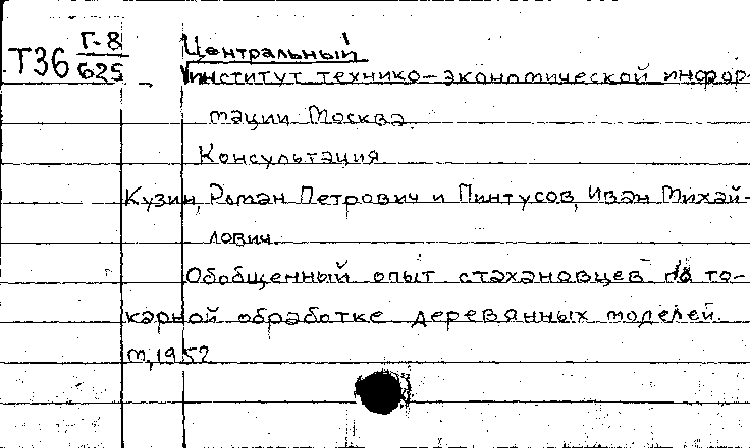 Т36 Г-8
625
Центральный
институт технико-экономической инфор-
мации. Москва.
Консультация
Кузин, Роман Петрович и Пинтусов, Иван Михай-
лович.
Обобщенный опыт стахановцев по то-
карной обработке деревянных моделей.
М, 1952